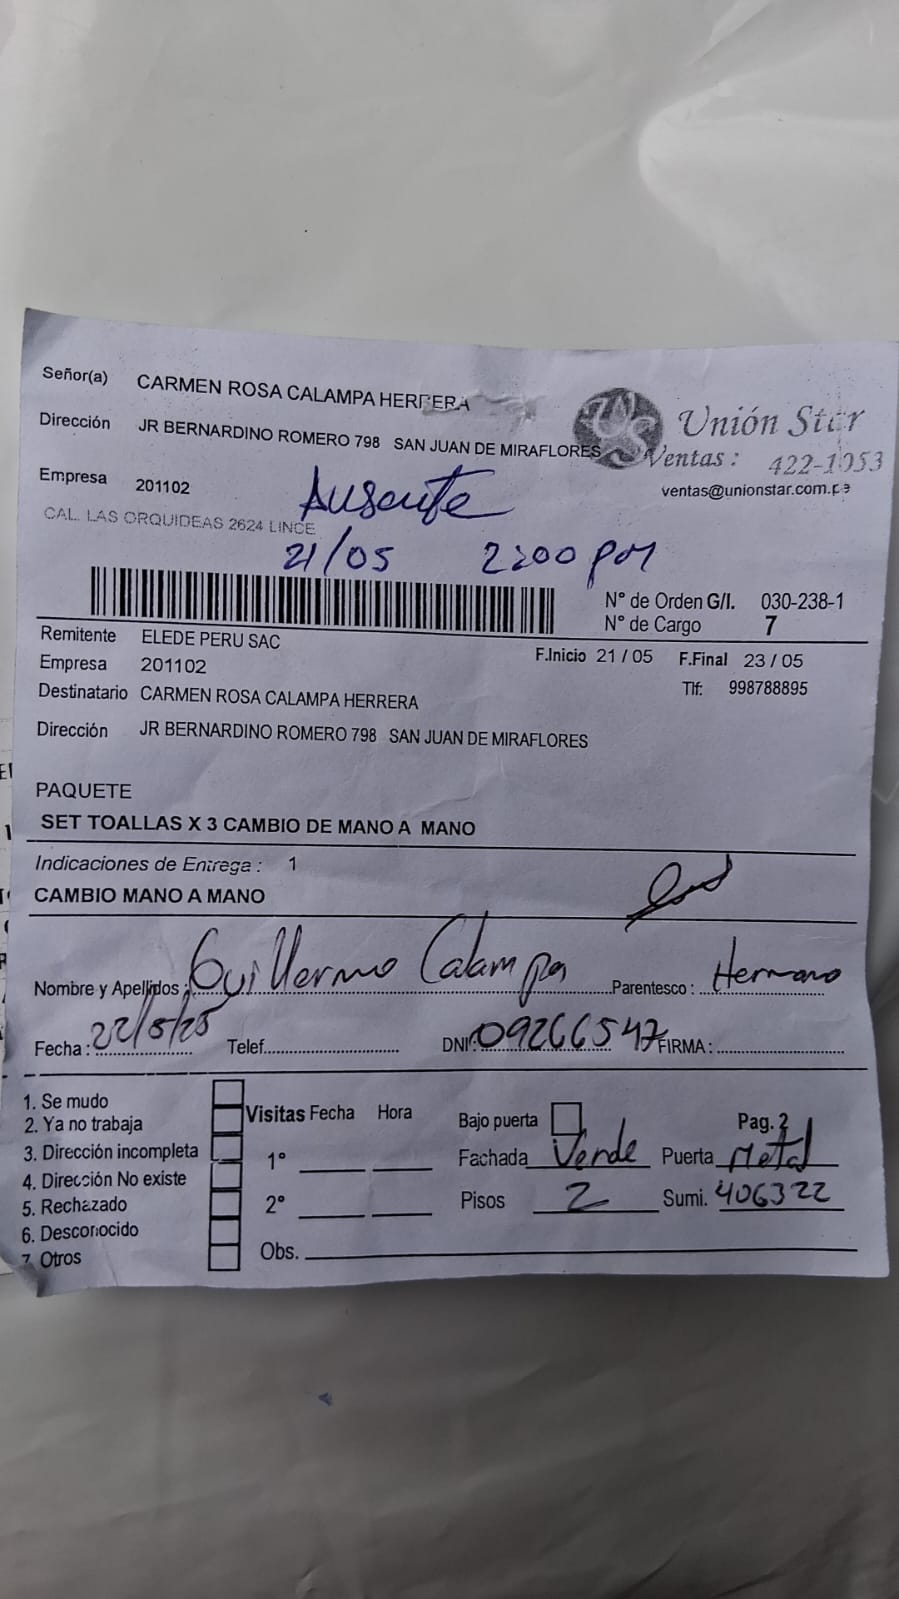 Señor(a) CARMEN ROSA CALAMPA HERRERA
Dirección JR BERNARDINO ROMERO 798 SAN JUAN DE MIRAFLORES
Unión Star
Ventas : 422-1053
ventas@unionstar.com.pe
Empresa 201102
CAL. LAS ORQUIDEAS 2624 LINCE
Ausente
21/05 2:00 pm
N° de Orden G/I. 030-238-1
N° de Cargo 7
Remitente ELEDE PERU SAC
F.Inicio 21 / 05 F.Final 23 / 05
Empresa 201102
Tlf: 998788895
Destinatario CARMEN ROSA CALAMPA HERRERA
Dirección JR BERNARDINO ROMERO 798 SAN JUAN DE MIRAFLORES
PAQUETE
SET TOALLAS X 3 CAMBIO DE MANO A MANO
Indicaciones de Entrega : 1
CAMBIO MANO A MANO
Nombre y Apellidos : Guillermo Calampa Parentesco : Hermano
Fecha : 22/5/25 Telef. DNI : 09266547 FIRMA :
1. Se mudo
2. Ya no trabaja
3. Dirección incompleta
4. Dirección No existe
5. Rechazado
6. Desconocido
7. Otros
Visitas Fecha Hora
1°
2°
Obs.
Bajo puerta Pag. 2
Fachada Verde Puerta Metal
Pisos 2 Sumi. 406322